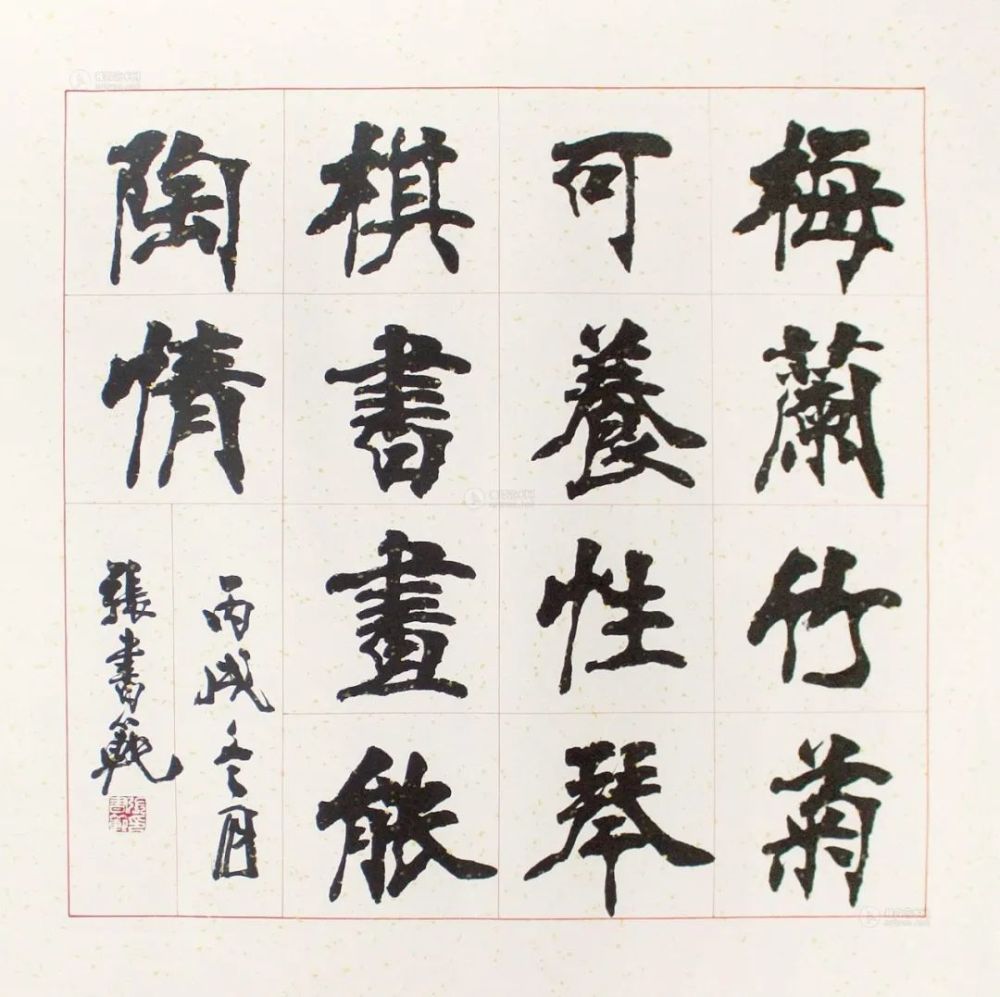 梅蘭竹菊
可養性琴
棋書畫能
陶情
丙戌冬月
張書範